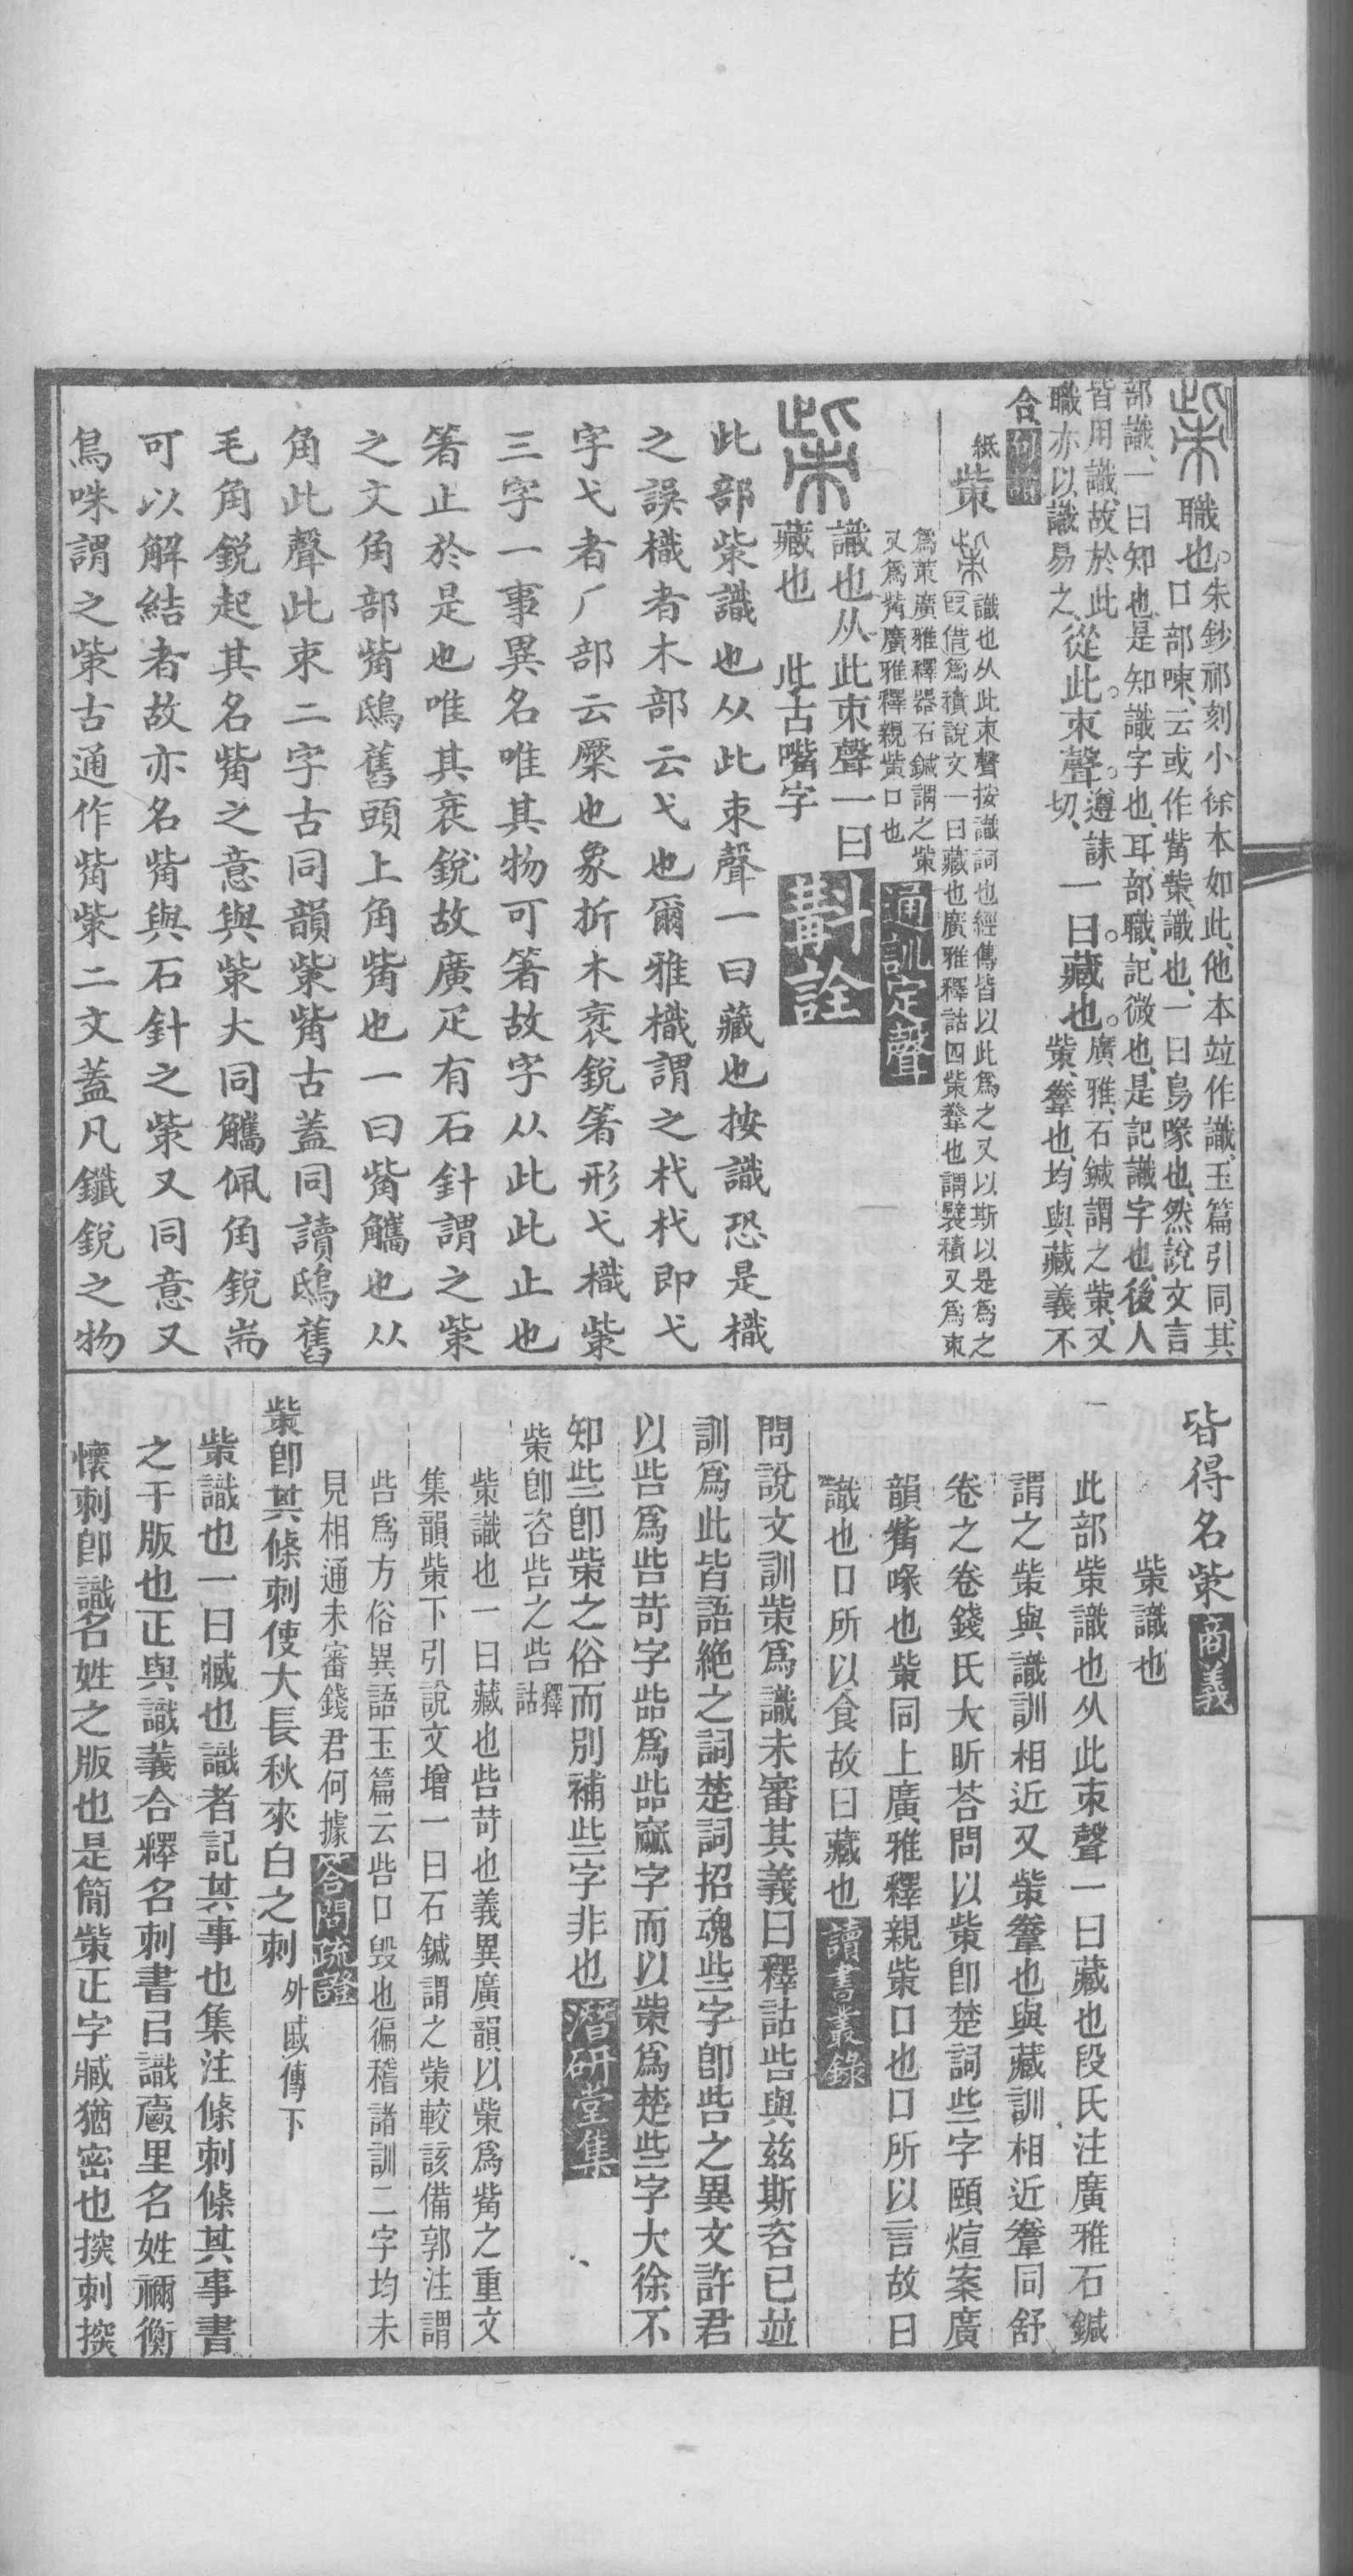 職也朱鈔祁刻小徐本如此他本竝作識玉篇引同其
口部㖩云或作觜㭰識也一曰鳥喙也然說文言
部識一曰知也是知識字也耳部職記微也是記識字也後人
皆用識故於此
職亦以識易之
從此朿聲
遵誄切
一曰藏也
廣雅石鍼謂之㭰又
㭰㡓也均與藏義不
合
紙
㭰
識也从此朿聲按識詞也經傳皆以此為之又以斯以是為之
叚借為積說文一曰藏也廣雅釋詁四㭰㡓也謂襞積又為朿
為萊廣雅釋器石鍼謂之㭰
又為觜廣雅釋親㭰口也
通訓定聲
識也从此朿聲一曰
藏也 此古嘴字
斠詮
此部㭰識也从此朿聲一曰藏也按識恐是樴
之誤樴者木部云弋也爾雅樴謂之杙杙即弋
字弋者厂部云橜也象折木衺銳箸形弋樴㭰
三字一事異名唯其物可箸故字从此此止也
箸止於是也唯其衺銳故廣疋有石針謂之㭰
之文角部觜鴟舊頭上角觜也一曰觜觿也从
角此聲此朿二字古同韻㭰觜古蓋同讀鴟舊
毛角銳起其名觜之意與㭰大同觿佩角銳耑
可以解結者故亦名觜與石針之㭰又同意又
鳥咮謂之㭰古通作觜㭰二文蓋凡鑯銳之物
皆得名㭰
商義
㭰識也
此部㭰識也从此朿聲一曰藏也段氏注廣雅石鍼
謂之㭰與識訓相近又㭰㡓也與藏訓相近㡓同舒
卷之卷錢氏大昕荅問以㭰卽楚詞些字頤煊案廣
韻觜喙也㭰同上廣雅釋親㭰口也口所以言故曰
識也口所以食故曰藏也
讀書叢錄
問說文訓㭰爲識未審其義曰釋詁呰與兹斯咨已竝
訓爲此皆語絶之詞楚詞招魂些字卽呰之異文許君
以呰爲呰苛字啙爲啙窳字而以㭰爲楚些字大徐不
知些卽㭰之俗而別補些字非也
潛研堂集
㭰卽咨呰之呰
釋詁
㭰識也一曰藏也呰苛也義異廣韻以㭰爲觜之重文
集韻㭰下引說文增一曰石鍼謂之㭰較該備郭注謂
呰爲方俗異語玉篇云呰口毀也徧稽諸訓二字均未
見相通未審錢君何據
答問疏證
㭰卽其條刺使大長秋來白之刺
外戚傳下
㭰識也一曰臧也識者記其事也集注條刺條其事書
之于版也正與識義合釋名刺書㠯識爵里名姓禰衡
懷刺卽識名姓之版也是簡㭰正字臧猶密也揬刺揬